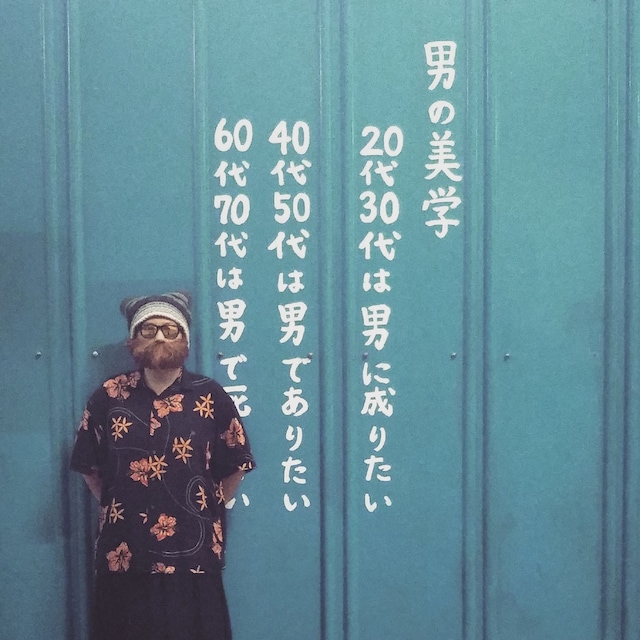 男の美学
20代30代は男に成りたい
40代50代は男でありたい
60代70代は男で い